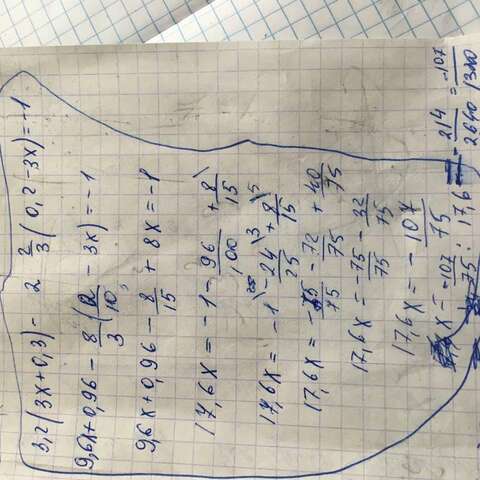 3,2(3x+0,3)- 2 2/3(0,2-3x)=-1
9,6x+0,96 - 8/3(2/10 - 3x)=-1
9,6x+0,96 - 8/15 + 8x=-1
17,6x = -1 - 96/100 + 8/15
17,6x = -1 - 24/25 + 8/15
17,6x = -75/75 - 72/75 + 40/75
17,6x = -75/75 - 32/75
17,6x = - 107/75
x = -107/75 : 17,6 = - 214/2640 = -107/1320